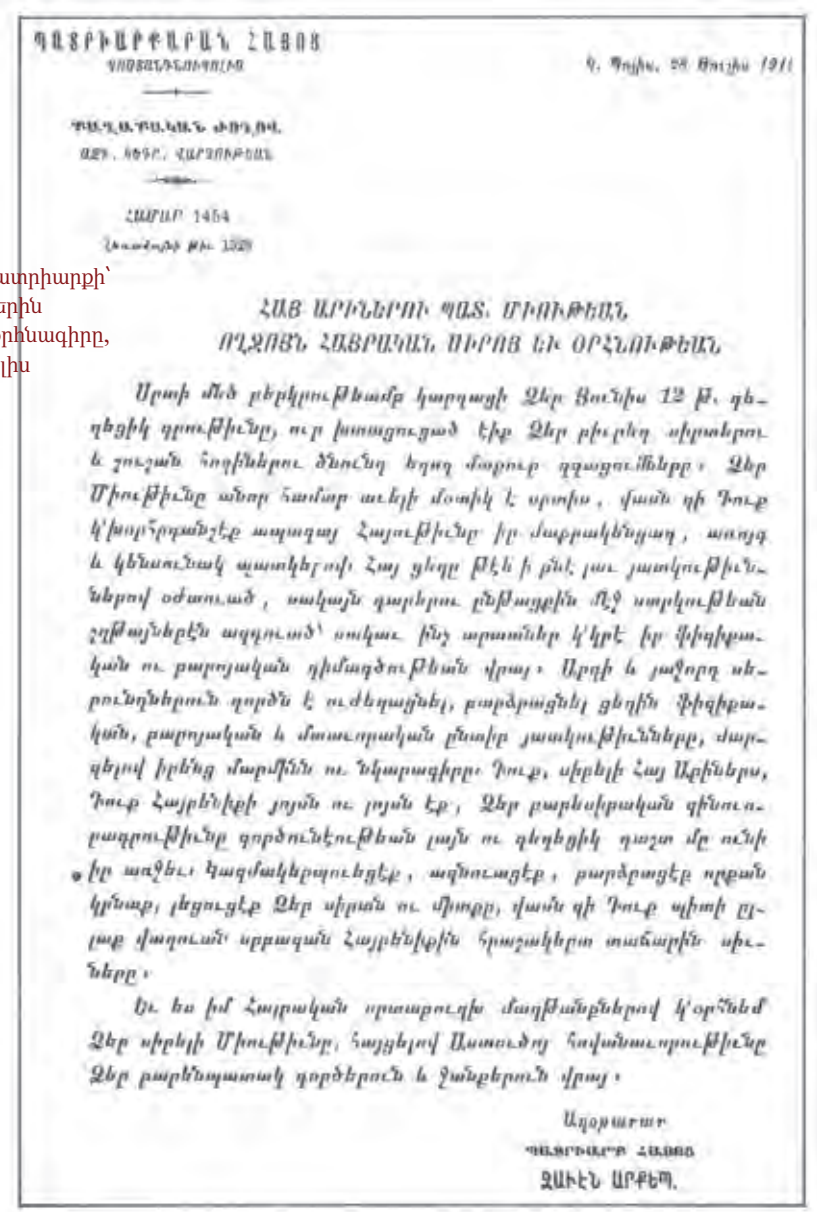 ՊԱՏՐԻԱՐՔԱՐԱՆ ՀԱՅՈՑ
Կ. Պոլիս, 28 Յուլիս 1911
ՔԱՂԱՔԱԿԱՆ ԺՈՂՈՎ.
ՀԱՄԱՐ 1454
թիւ 1529
ատրիարքի՝
երին
րհնագիրը,
լիս
ՀԱՅ ԱՐԻՆԵՐՈՒ ՊԱՏ. ՄԻՈՒԹԵԱՆ
ՈՂՋՈՅՆ ՀԱՅՐԱԿԱՆ ՍԻՐՈՅ ԵՒ ՕՐՀՆՈՒԹԵԱՆ
Սրտի մեծ բերկրութեամբ կարդացի Ձեր Յունիս 12 թ. գե-
ղեցիկ գրութիւնը, ուր խտացուցած էիք Ձեր բիւրեղ սիրտերու
և շուշան հոգիներու ծնունդ եղող մաքուր զգացումները։ Ձեր
Միութիւնը անոր համար աւելի մօտիկ է սրտիս, վասն զի Դուք
կ'խորհրդանշէք ապագայ Հայութիւնը իր մաքրակենցաղ, առոյգ
և կենսունակ պատկերով։ Հայ ցեղը թէև ի բնէ լաւ յատկութիւն-
ներով օժտուած, սակայն դարերու ընթացքին մէջ ստրկութեան
շղթայներէն ազդուած՝ սակաւ ինչ արատներ կ'կրէ իր ֆիզիքա-
կան ու բարոյական դիմագծութեան վրայ։ Արդի և յաջորդ սե-
րունդներուն գործն է ուժեղացնել, բարձրացնել ցեղին ֆիզիքա-
կան, բարոյական և մտաւորական ընտիր յատկութիւնները, մար-
զելով իրենց մարմինն ու նկարագիրը։ Դուք, սիրելի Հայ Արիներս,
Դուք Հայրենիքի յոյսն ու լոյսն էք, Ձեր բարեսիրական զինուո-
րագրութիւնը գործունէութեան լայն ու գեղեցիկ դաշտ մը ունի
իր առջեւ։ Կազմակերպուեցէք, ազնուացէք, բարձրացէք որքան
կրնաք, լեցուցէք Ձեր սիրան ու միտքը, վասն զի Դուք պիտի ըլ-
լաք վաղուան սրբազան Հայրենիքին հրաշակերտ տաճարին սիւ-
ները։
Եւ ես իմ Հայրական սրտաբուղխ մաղթանքներով կ'օրհնեմ
Ձեր սիրելի Միութիւնը, հայցելով Աստուծոյ հովանաւորութիւնը
Ձեր բարենպատակ գործերուն և ջանքերուն վրայ։
Աղօթարար
ՊԱՏՐԻԱՐՔ ՀԱՅՈՑ
ԶԱՒԷՆ ԱՐՔԵՊ.